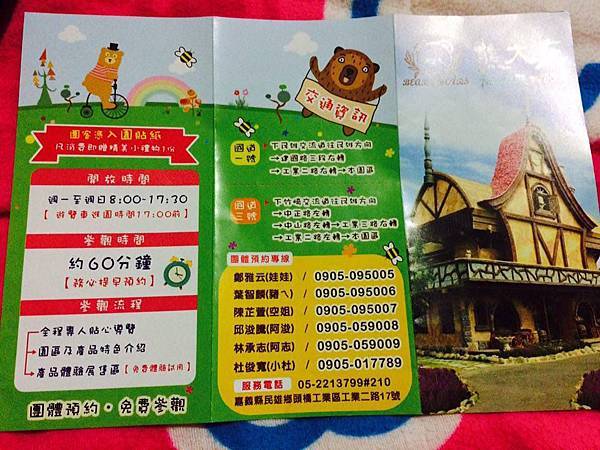 團客憑入園貼紙
凡消費即贈精美小禮物1份
開放時間
週一至週日8:00-17:30
【遊覽車進園時間17:00前】
參觀時間
約60分鐘
【務必提早預約】
參觀流程
全程專人貼心導覽
園區及產品特色介紹
產品體驗展售區【免費體驗試用】
團體預約・免費參觀
交通資訊
國道一號
下民雄交流道往民雄方向
→建國路三段右轉
→工業二路右轉→本園區
國道三號
下竹崎交流道往民雄方向
→中正路左轉
→中山路左轉→工業三路右轉
→工業二路左轉→本園區
團體預約專線
鄭雅云(娃娃) / 0905-095005
葉智麟(豬ㄟ) / 0905-095006
陳芷萱(空姐) / 0905-095007
邱浚謙(阿浚) / 0905-059008
林承志(阿志) / 0905-059009
杜俊寬(小杜) / 0905-017789
服務電話 05-2213799#210
嘉義縣民雄鄉頭橋工業區工業二路17號